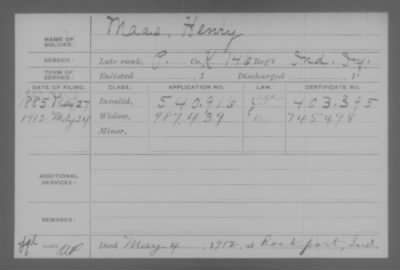 Maas, Henry
NAME OF SOLDIER:
SERVICE: Late rank, P. Co. K 146 Reg't Ind. Inf.
TERM OF SERVICE: Enlisted , 1 Discharged , 1
DATE OF FILING. CLASS. APPLICATION NO. LAW. CERTIFICATE NO.
1885 27 Invalid, 540,916 403,395
1912 May 24 Widow, 987,439 745478
Minor,
ADDITIONAL SERVICES:
REMARKS:
Died May 4, 1912, at Rockport, Ind.